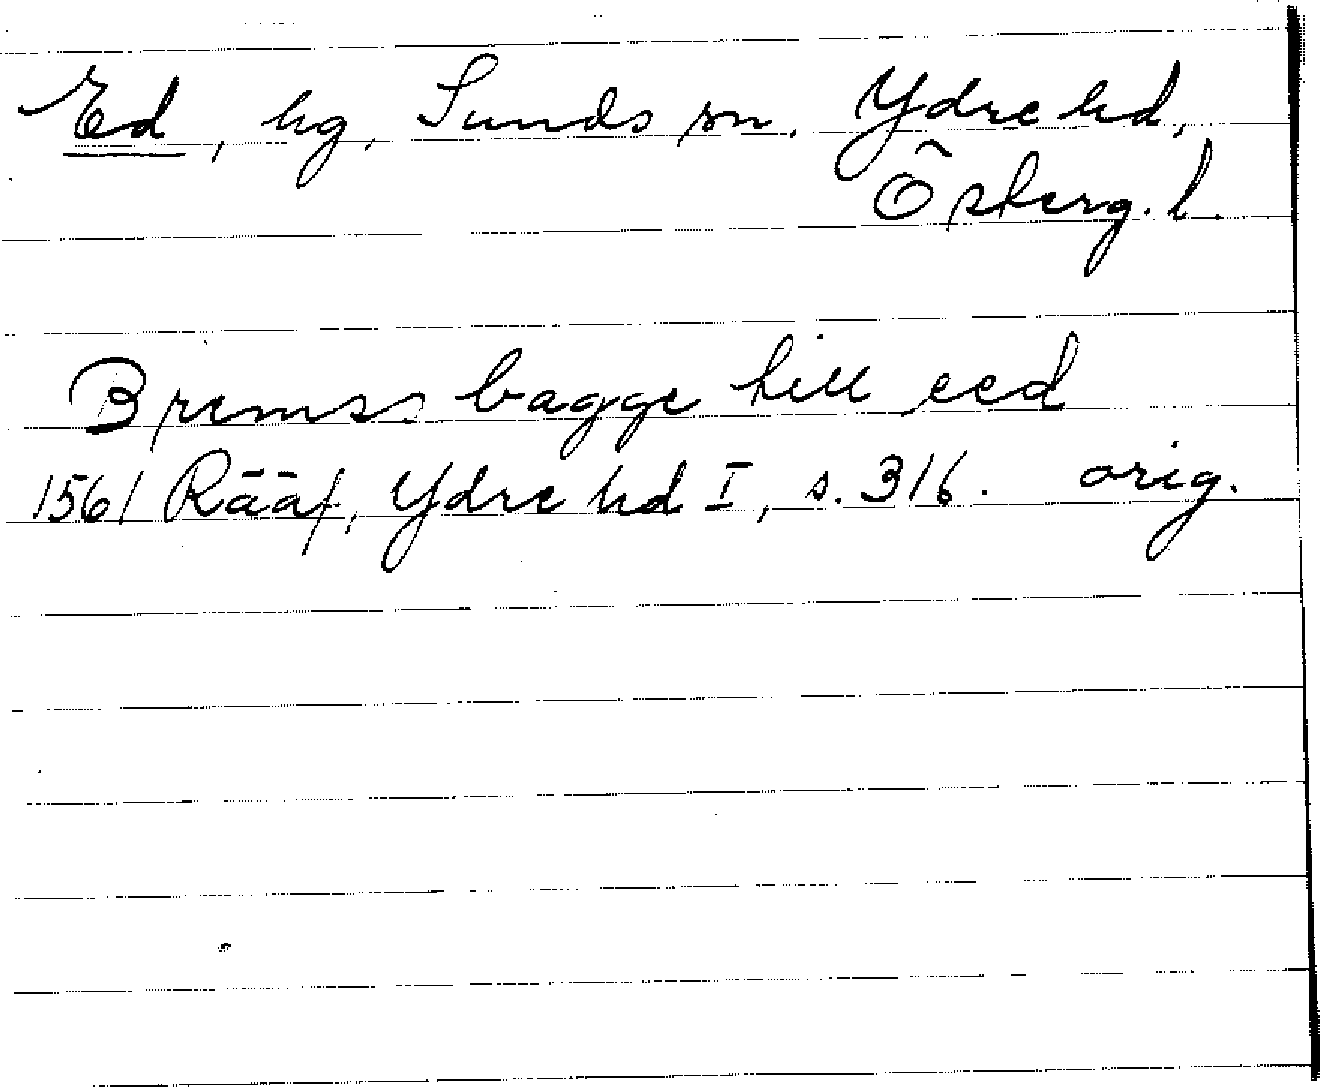 Ed, hg, Sunds sn. Ydre hd,
Österg. l.
Bremss bagge till eed
1561 Rääf, Ydre hd I, s. 316. orig.